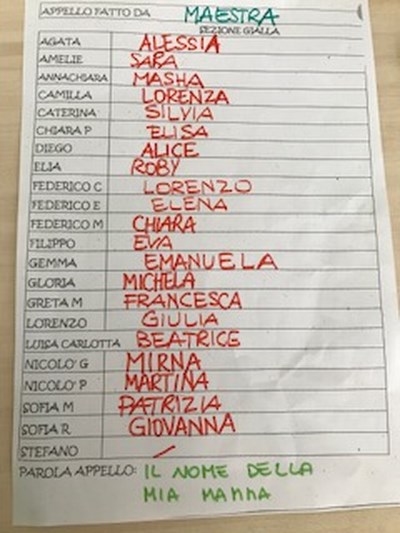 APPELLO FATTO DA MAESTRA
SEZIONE GIALLA
AGATA ALESSIA
AMELIE SARA
ANNACHIARA MASHA
CAMILLA LORENZA
CATERINA SILVIA
CHIARA P ELISA
DIEGO ALICE
ELIA ROBY
FEDERICO C LORENZO
FEDERICO E ELENA
FEDERICO M CHIARA
FILIPPO EVA
GEMMA EMANUELA
GLORIA MICHELA
GRETA M FRANCESCA
LORENZO GIULIA
LUISA CARLOTTA BEATRICE
NICOLO' G MIRNA
NICOLO' P MARTINA
SOFIA M PATRIZIA
SOFIA R GIOVANNA
STEFANO /
PAROLA APPELLO: IL NOME DELLA
MIA MAMMA